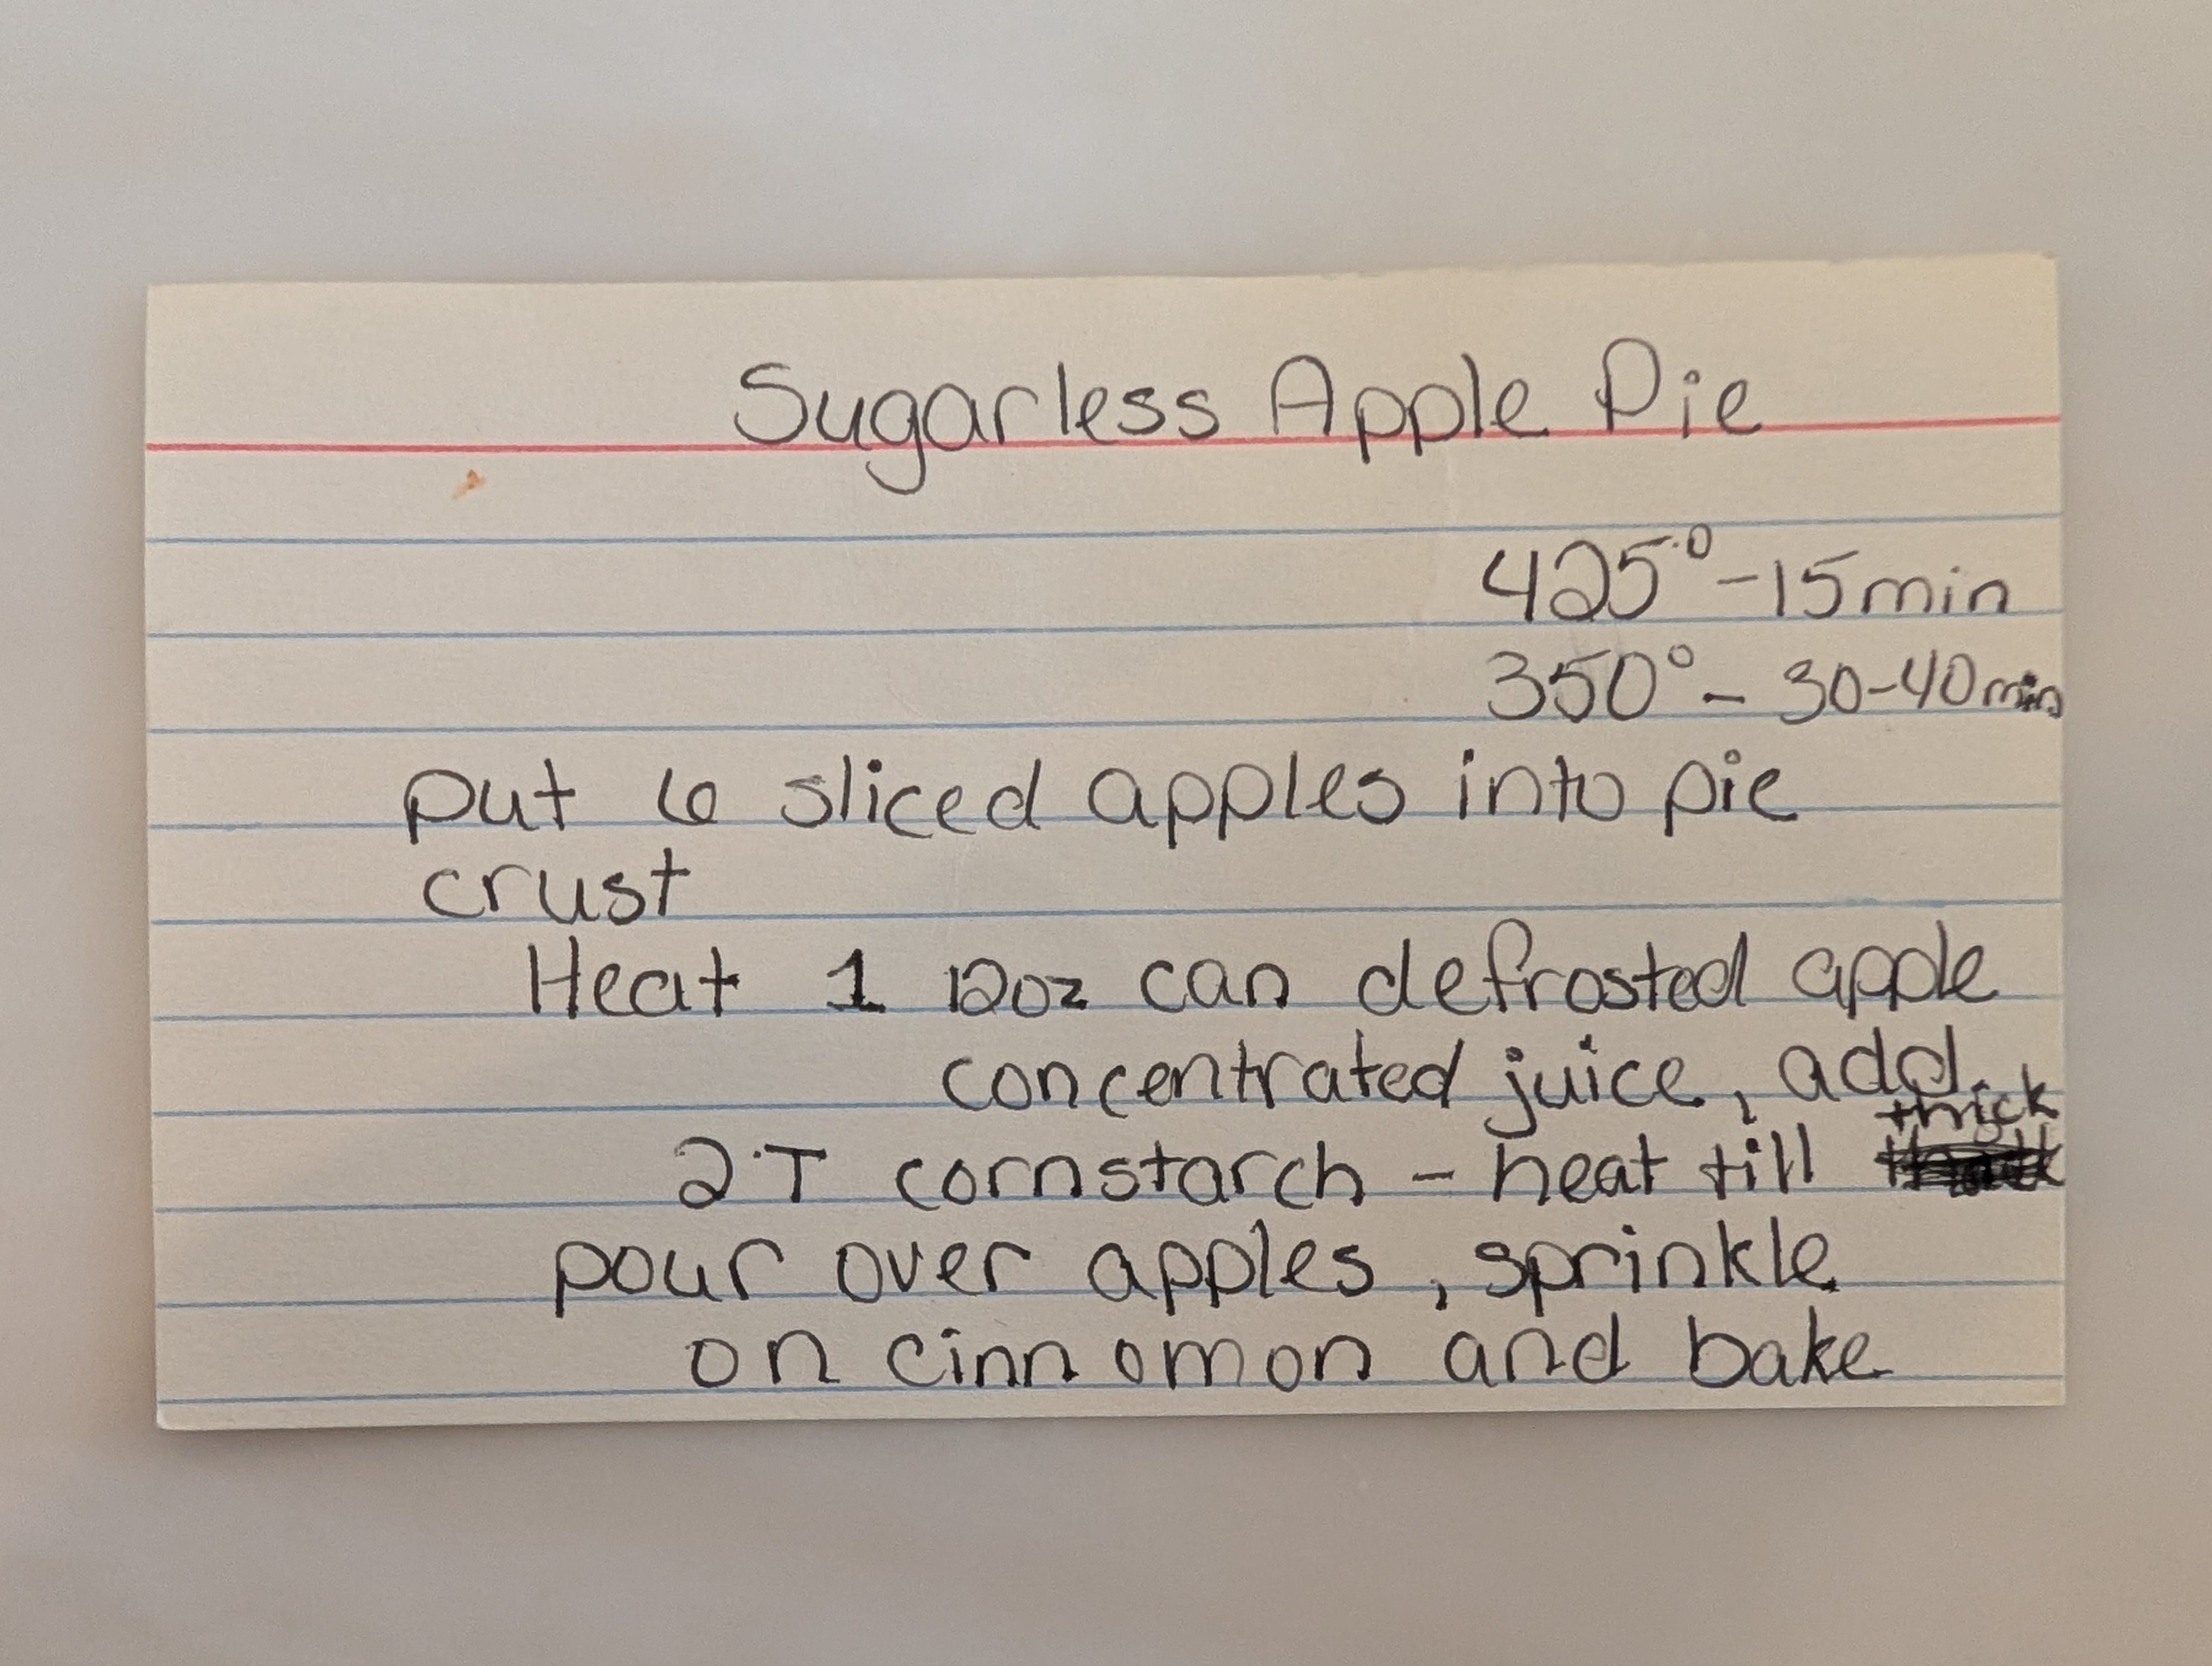 Sugarless Apple Pie
425° - 15 min
350° - 30-40 min
put 6 sliced apples into pie
crust
Heat 1 12oz can defrosted apple
concentrated juice, add
thick
2 T cornstarch - heat till
pour over apples, sprinkle
on cinnomon and bake